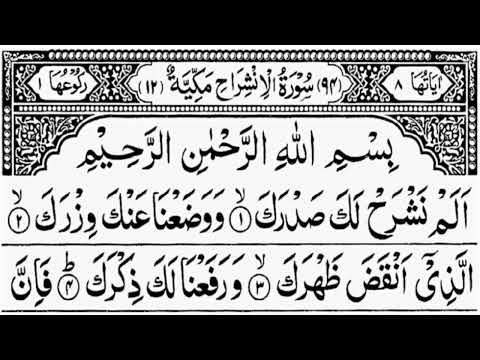 اٰيَاتُهَا ٨ (٩٤) سُوْرَةُ الْاِنْشِرَاحِ مَكِّيَّةٌ (١٢) رُكُوْعُهَا ١
بِسْمِ اللّٰهِ الرَّحْمٰنِ الرَّحِيْمِ
اَلَمْ نَشْرَحْ لَكَ صَدْرَكَ ۙ‏﴿۱﴾ وَوَضَعْنَا عَنْكَ وِزْرَكَ ۙ‏﴿۲﴾
الَّذِيْۤ اَنْقَضَ ظَهْرَكَ ۙ‏﴿۳﴾ وَرَفَعْنَا لَكَ ذِكْرَكَ ؕ‏﴿۴﴾ فَاِنَّ